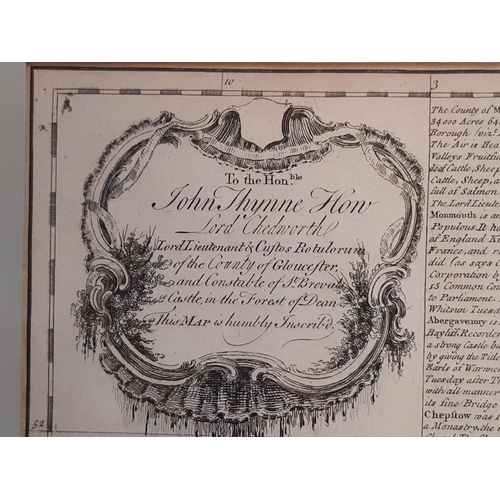 10
3
To the Hon.ble
John Thynne How
Lord Chedworth
Lord Lieutenant & Custos Rotulorum
of the County of Gloucester,
and Constable of St. Brevals
Castle, in the Forest of Dean
This MAP is humbly Inscrib'd.
52
The County of M
34000 Acres 64
Borough (viz.
The Air is Hea
Valleys Fruitf
Cattle, Sheep
Cattle, Sheep, a
full of Salmon
The Lord Lieute
Monmouth is an
Populous. It ha
of England K
France, and
did (as says C
Corporation
15 Common Cou
to Parliament.
Whitsun Tuesd
Abergavenny
Bayliff, Recorder
a strong Castle bu
by giving the Titl
Earls of Warwic
Tuesday after T
with all manner
its fine Bridge
Chepstow was
a Monastry, the